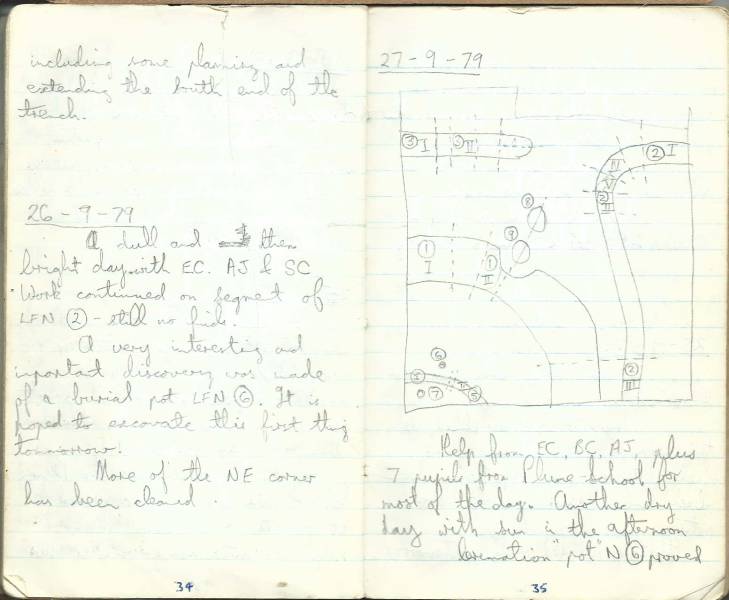 including some planning and
extending the south end of the
trench.
26-9-79
A dull and then
bright day with EC. AJ & SC
Work continued on segment of
LFN ② - still no finds.
A very interesting and
important discovery was made
of a burial pot LFN ⑥. It is
hoped to excavate this first thing
tomorrow.
More of the NE corner
has been cleaned.
34
27-9-79
③ I
③ II
② I
IV
V
② II
⑧
⑨
① I
① II
⑥
⑤
I
II
⑤
⑦
② III
Help from EC, BC, AJ, plus
7 pupils from Plume School for
most of the day. Another dry
day with sun in the afternoon
Cremation "pot" N ⑥ proved
35